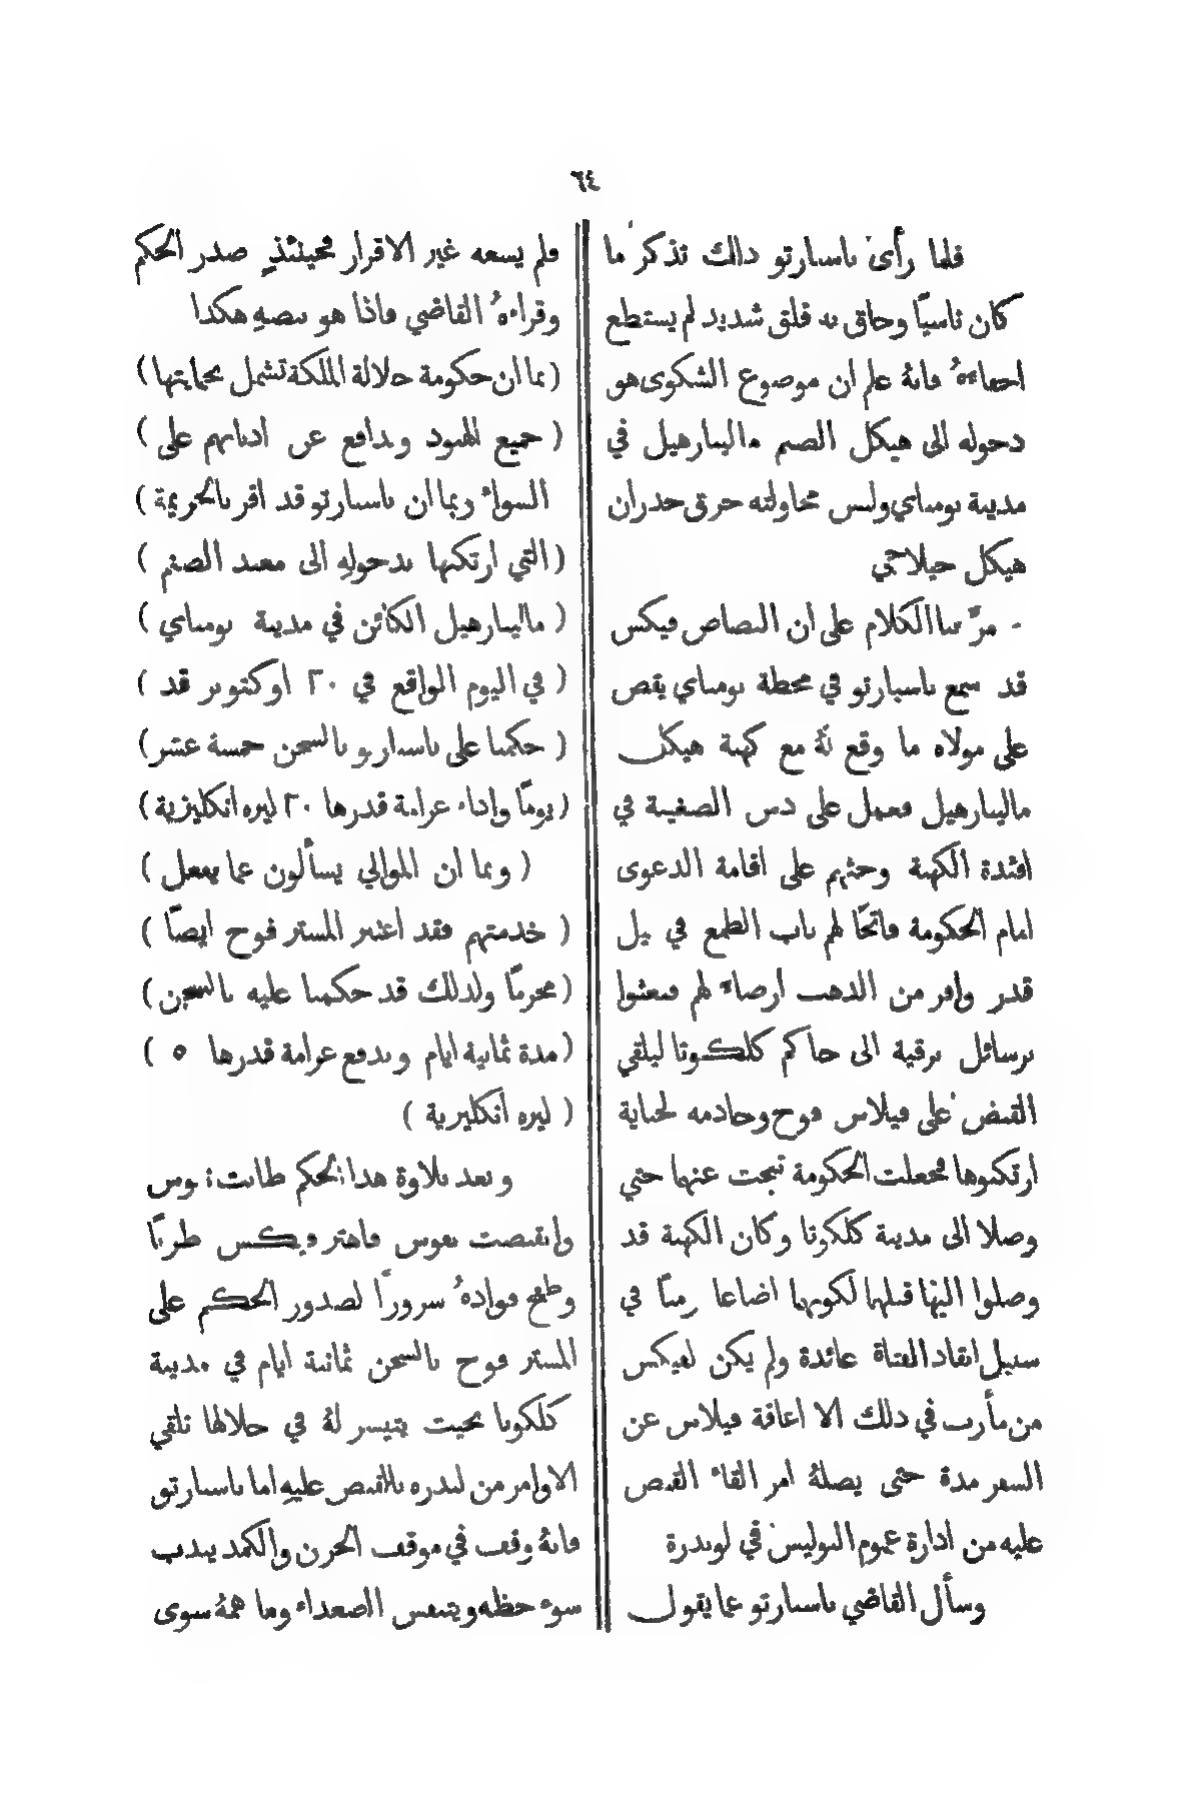 ٦٤
فلما رأى باسبارتو ذلك تذكر ما
كان ناسيًا وحاق به قلق شديد لم يستطع
اخفاءهُ فانهُ علم ان موضوع الشكوى هو
دخوله الى هيكل الصنم ماليبارهيل في
مدينة بومباي وليس محاولته حرق جدران
هيكل حيلاجي
مرَّ بنا الكلام على ان البصاص فيكس
قد سمع باسبارتو في محطة بومباي يقص
على مولاه ما وقع لهُ مع كهنة هيكل
ماليبارهيل فعمل على دس الضغينة في
افئدة الكهنة وحثهم على اقامة الدعوى
امام الحكومة فاتحًا لهم باب الطمع في نيل
قدر وافر من الذهب ارضاء لهم فبعثوا
برسائل برقية الى حاكم كلكوتا ليلقي
القبض على فيلاس فوح وخادمه لجناية
ارتكبوها فجعلت الحكومة تبحث عنهما حتي
وصلا الى مدينة كلكوتا وكان الكهنة قد
وصلوا اليها قبلهما لكونهما اضاعا زمنًا في
سبيل انقاذ الفتاة عائدة ولم يكن لفيكس
من مأرب في ذلك الا اعاقة فيلاس عن
السفر مدة حتى يصلهُ امر القاء القبض
عليه من ادارة عموم البوليس في لوندرة
وسأل القاضي باسبارتو عما يقول
فلم يسعه غير الاقرار فحينئذٍ صدر الحكم
وقراءهُ القاضي فاذا هو بنصهِ هكذا
( بما ان حكومة جلالة الملكة تشمل بحمايتها )
( جميع الهنود وتدافع عن اديانهم على )
السواء وبما ان باسبارتو قد اقر بالجريمة )
( التي ارتكبها بدخولهِ الى معبد الصنم )
( ماليبارهيل الكائن في مدينة بومباي )
( في اليوم الواقع في ٢٠ اوكتوبر قد )
( حكمنا على باسبارتو بالسجن خمسة عشر )
( يومًا واداء غرامة قدرها ٢٠ ليره انكليزية )
( وبما ان الموالي يسألون عما يفعل )
( خدمتهم فقد اعتبر المستر فوح ايضًا )
( مجرمًا ولذلك قد حكمنا عليه بالسجن )
( مدة ثمانية ايام وبدفع غرامة قدرها ٥ )
( ليره انكليزية )
وبعد تلاوة هذا الحكم طابت نفوس
وانقبضت نفوس فاهتز فيكس طربًا
وطفح فوادهُ سرورًا لصدور الحكم على
المستر فوح بالسجن ثمانية ايام في مدينة
كلكوتا بحيث يتيسر لهُ في خلالها تلقي
الاوامر من لندره بالقبض عليهِ اما باسبارتو
فانهُ وقف في موقف الحزن والكمد يندب
سوء حظه ويتنفس الصعداء وما همهُ سوى